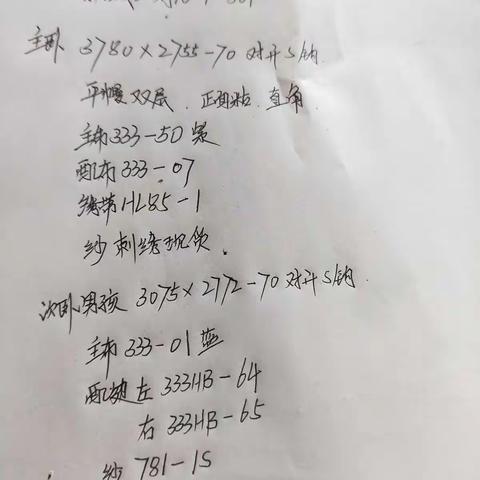 主卧 3780×2755-70 对开S钩
平幔双层、正面粘、直角.
主布333-50 紫
配布333-07
绣带HL85-1
纱 刺绣现货.
次卧男孩 3075×2772-70 对开S钩.
主布 333-01 蓝
配边 左 333HB-64
右 333HB-65
纱 781-15